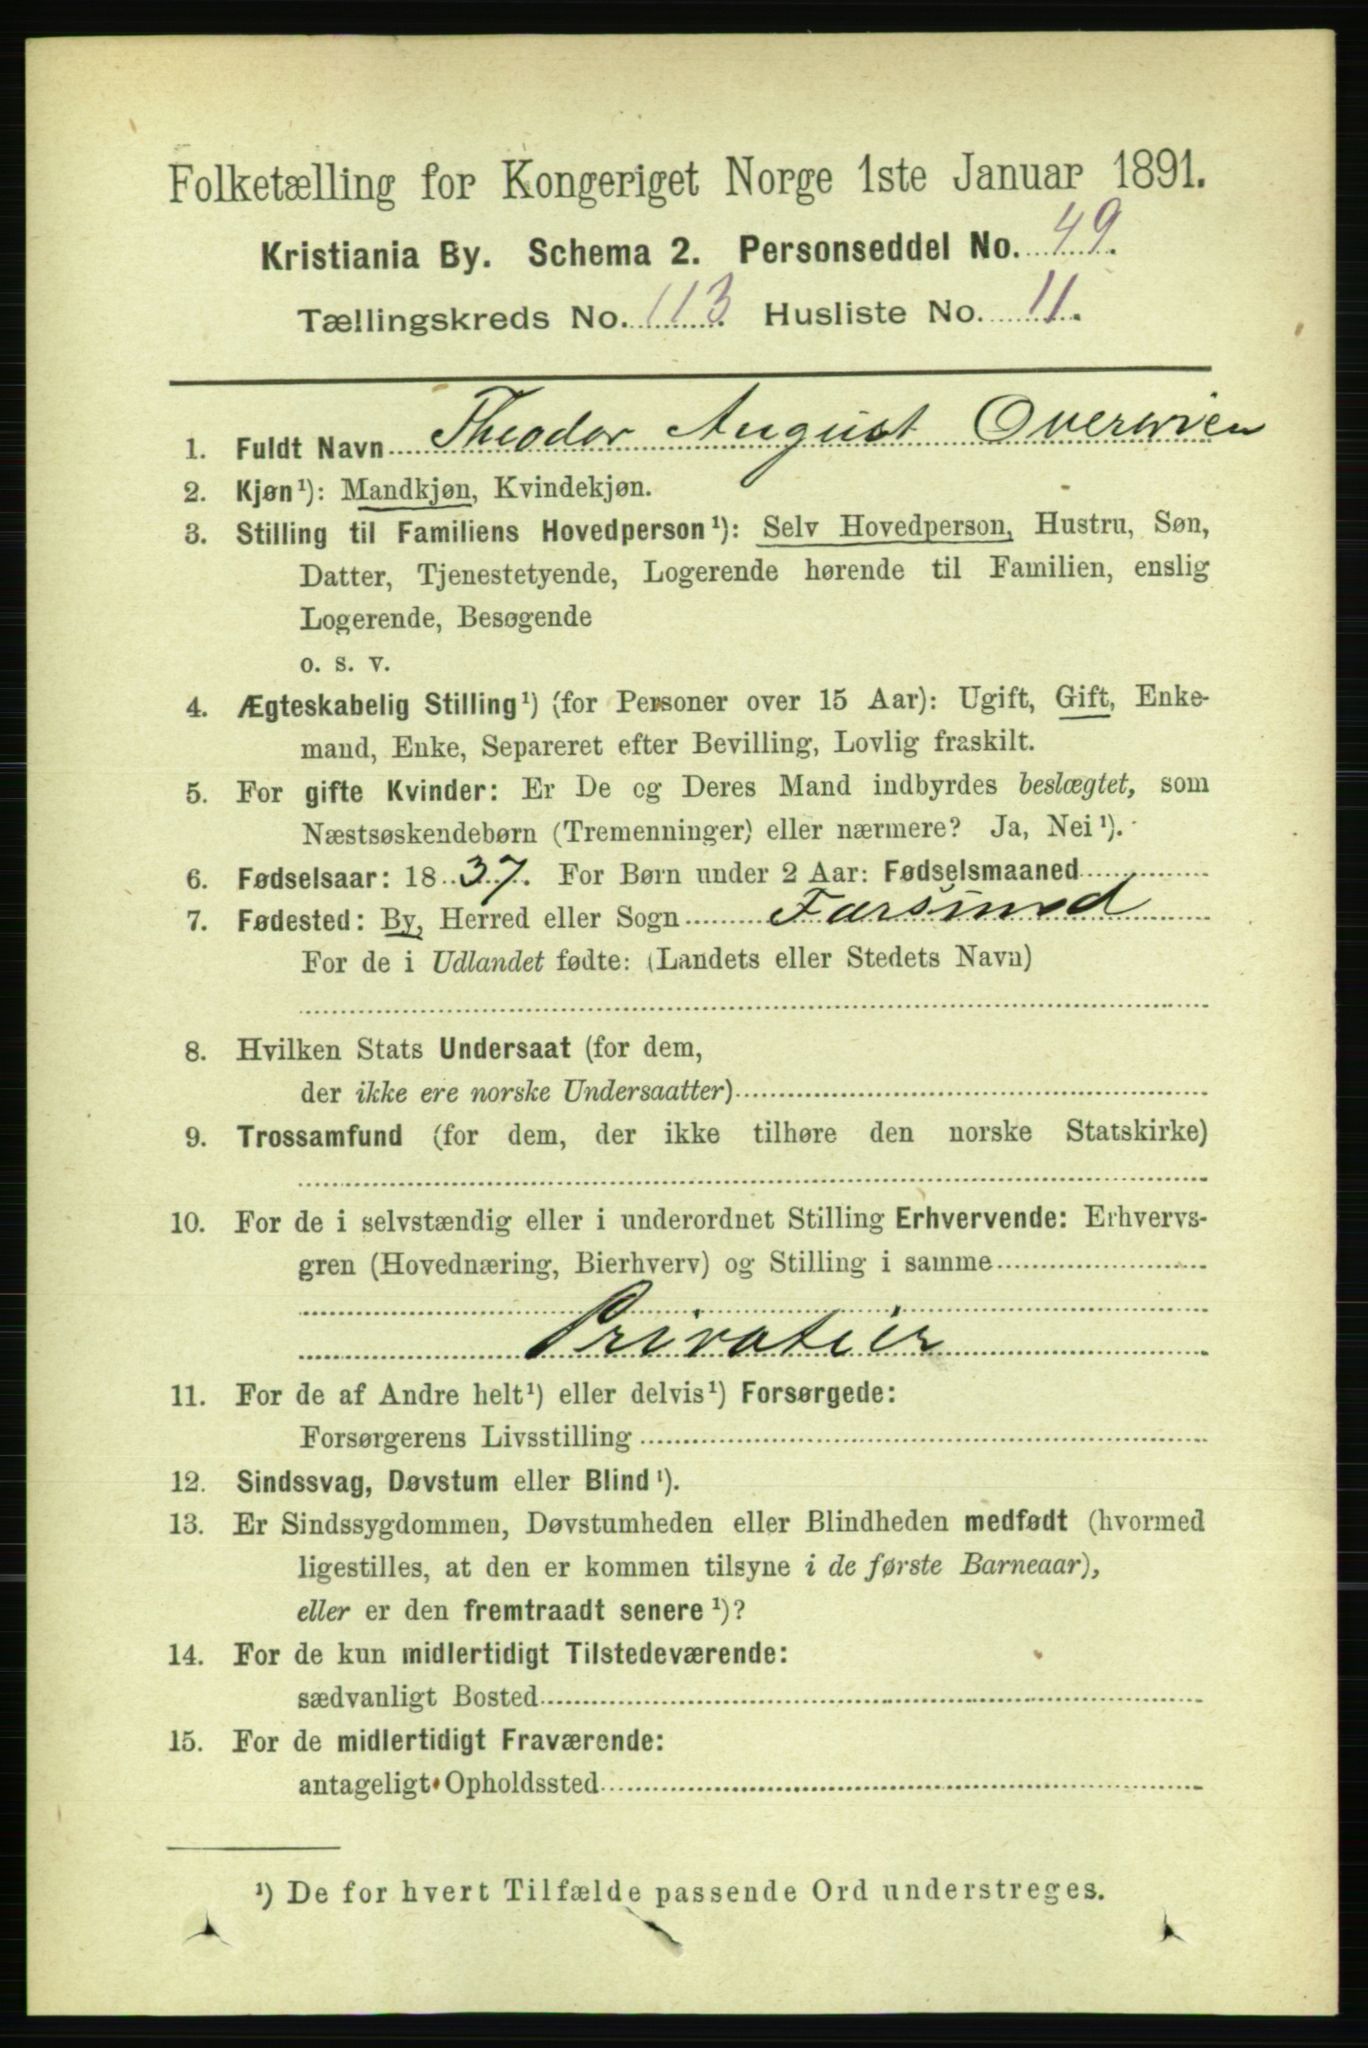 Folketælling for Kongeriget Norge 1ste Januar 1891.
Kristiania By. Schema 2. Personseddel No. 49.
Tællingskreds No. 113. Husliste No. 11.
1. Fuldt Navn Theodor August Overwien
2. Kjøn¹): Mandkjøn, Kvindekjøn.
3. Stilling til Familiens Hovedperson¹): Selv Hovedperson, Hustru, Søn,
Datter, Tjenestetyende, Logerende hørende til Familien, enslig
Logerende, Besøgende
o. s. v.
4. Ægteskabelig Stilling¹) (for Personer over 15 Aar): Ugift, Gift, Enke-
mand, Enke, Separeret efter Bevilling, Lovlig fraskilt.
5. For gifte Kvinder: Er De og Deres Mand indbyrdes beslægtet, som
Næstsøskendebørn (Tremenninger) eller nærmere? Ja, Nei¹).
6. Fødselsaar: 1837. For Børn under 2 Aar: Fødselsmaaned
7. Fødested: By, Herred eller Sogn Farsund
For de i Udlandet fødte: (Landets eller Stedets Navn)
8. Hvilken Stats Undersaat (for dem,
der ikke ere norske Undersaatter)
9. Trossamfund (for dem, der ikke tilhøre den norske Statskirke)
10. For de i selvstændig eller i underordnet Stilling Erhvervende: Erhvervs-
gren (Hovednæring, Bierhverv) og Stilling i samme
Privatier
11. For de af Andre helt¹) eller delvis¹) Forsørgede:
Forsørgerens Livsstilling
12. Sindssvag, Døvstum eller Blind¹).
13. Er Sindssygdommen, Døvstumheden eller Blindheden medfødt (hvormed
ligestilles, at den er kommen tilsyne i de første Barneaar),
eller er den fremtraadt senere¹)?
14. For de kun midlertidigt Tilstedeværende:
sædvanligt Bosted
15. For de midlertidigt Fraværende:
antageligt Opholdssted
¹) De for hvert Tilfælde passende Ord understreges.